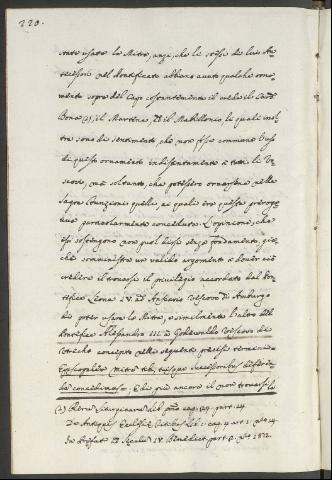 220.
sente usato la Mitra, anzi, che le stessi de' suoi An=
tecessori nel Pontificato abbiano avuto qualche orna=
mento sopra del Capo costantemente il crede il Card.
Bona (2), il Martena, Ed il Mabillonio, li quali inol=
tre sono di sentimento, che non fosse commune l'uso
di questo ornamento indistintamente a tutti li Ve=
scovi, mà soltanto, che potessero ornarsene nelle
sagre funzioni quelli, ai quali era questa preroga=
tiva particolarmente conceduta. L'opinione, che
essi sostengono non può dirsi senza fondamento, giac=
chè somministra un valido argomento a dover ciò
credere il trovarsi il privilegio accordato dal Pon=
tefice Leone IV ad Anserio Vescovo di Amburgo
di poter usare la Mitra, e similmente l'altro del
Pontefice Alessandro III a Vescovo di
concepito nelle seguenti precise
Episcopalis Mitre tibi, tuisque Successoribus
concedimus; E di più ancora il non trovarsi la
(2) Rerum Liturgicarum lib. pmo cap. 24. part. 24
De Antiquis Ecclesiae Ritibus lib. 1. cap. 4 art. 1. n.
In Praefat. ad Saeculum IV Benedict. part. 2. n.° 182.